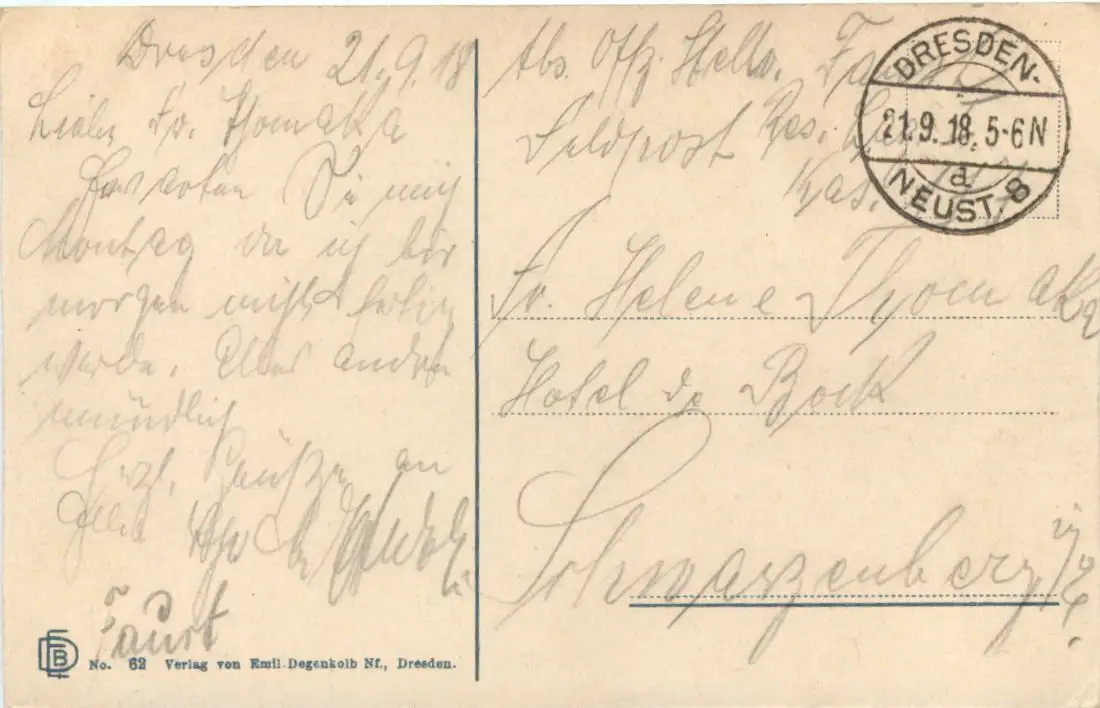 Dresden 21.9.18
Liebe Fr. Thomaka
Erwarten Sie mich
Montag da ich hier
morgen nicht fertig
werde. Alles andre
mündlich
Herzl. Grüße an
Alle
Faust
No. 62 Verlag von Emil Degenkolb Nf., Dresden.
Abs. Offz. Stellv. Faust
Feldpost Res.
DRESDEN-
21.9.18. 5-6N
a
NEUST. 8
Fr. Helene Thomaka
Hotel de Bock
Schwarzenberg
i/Sa.